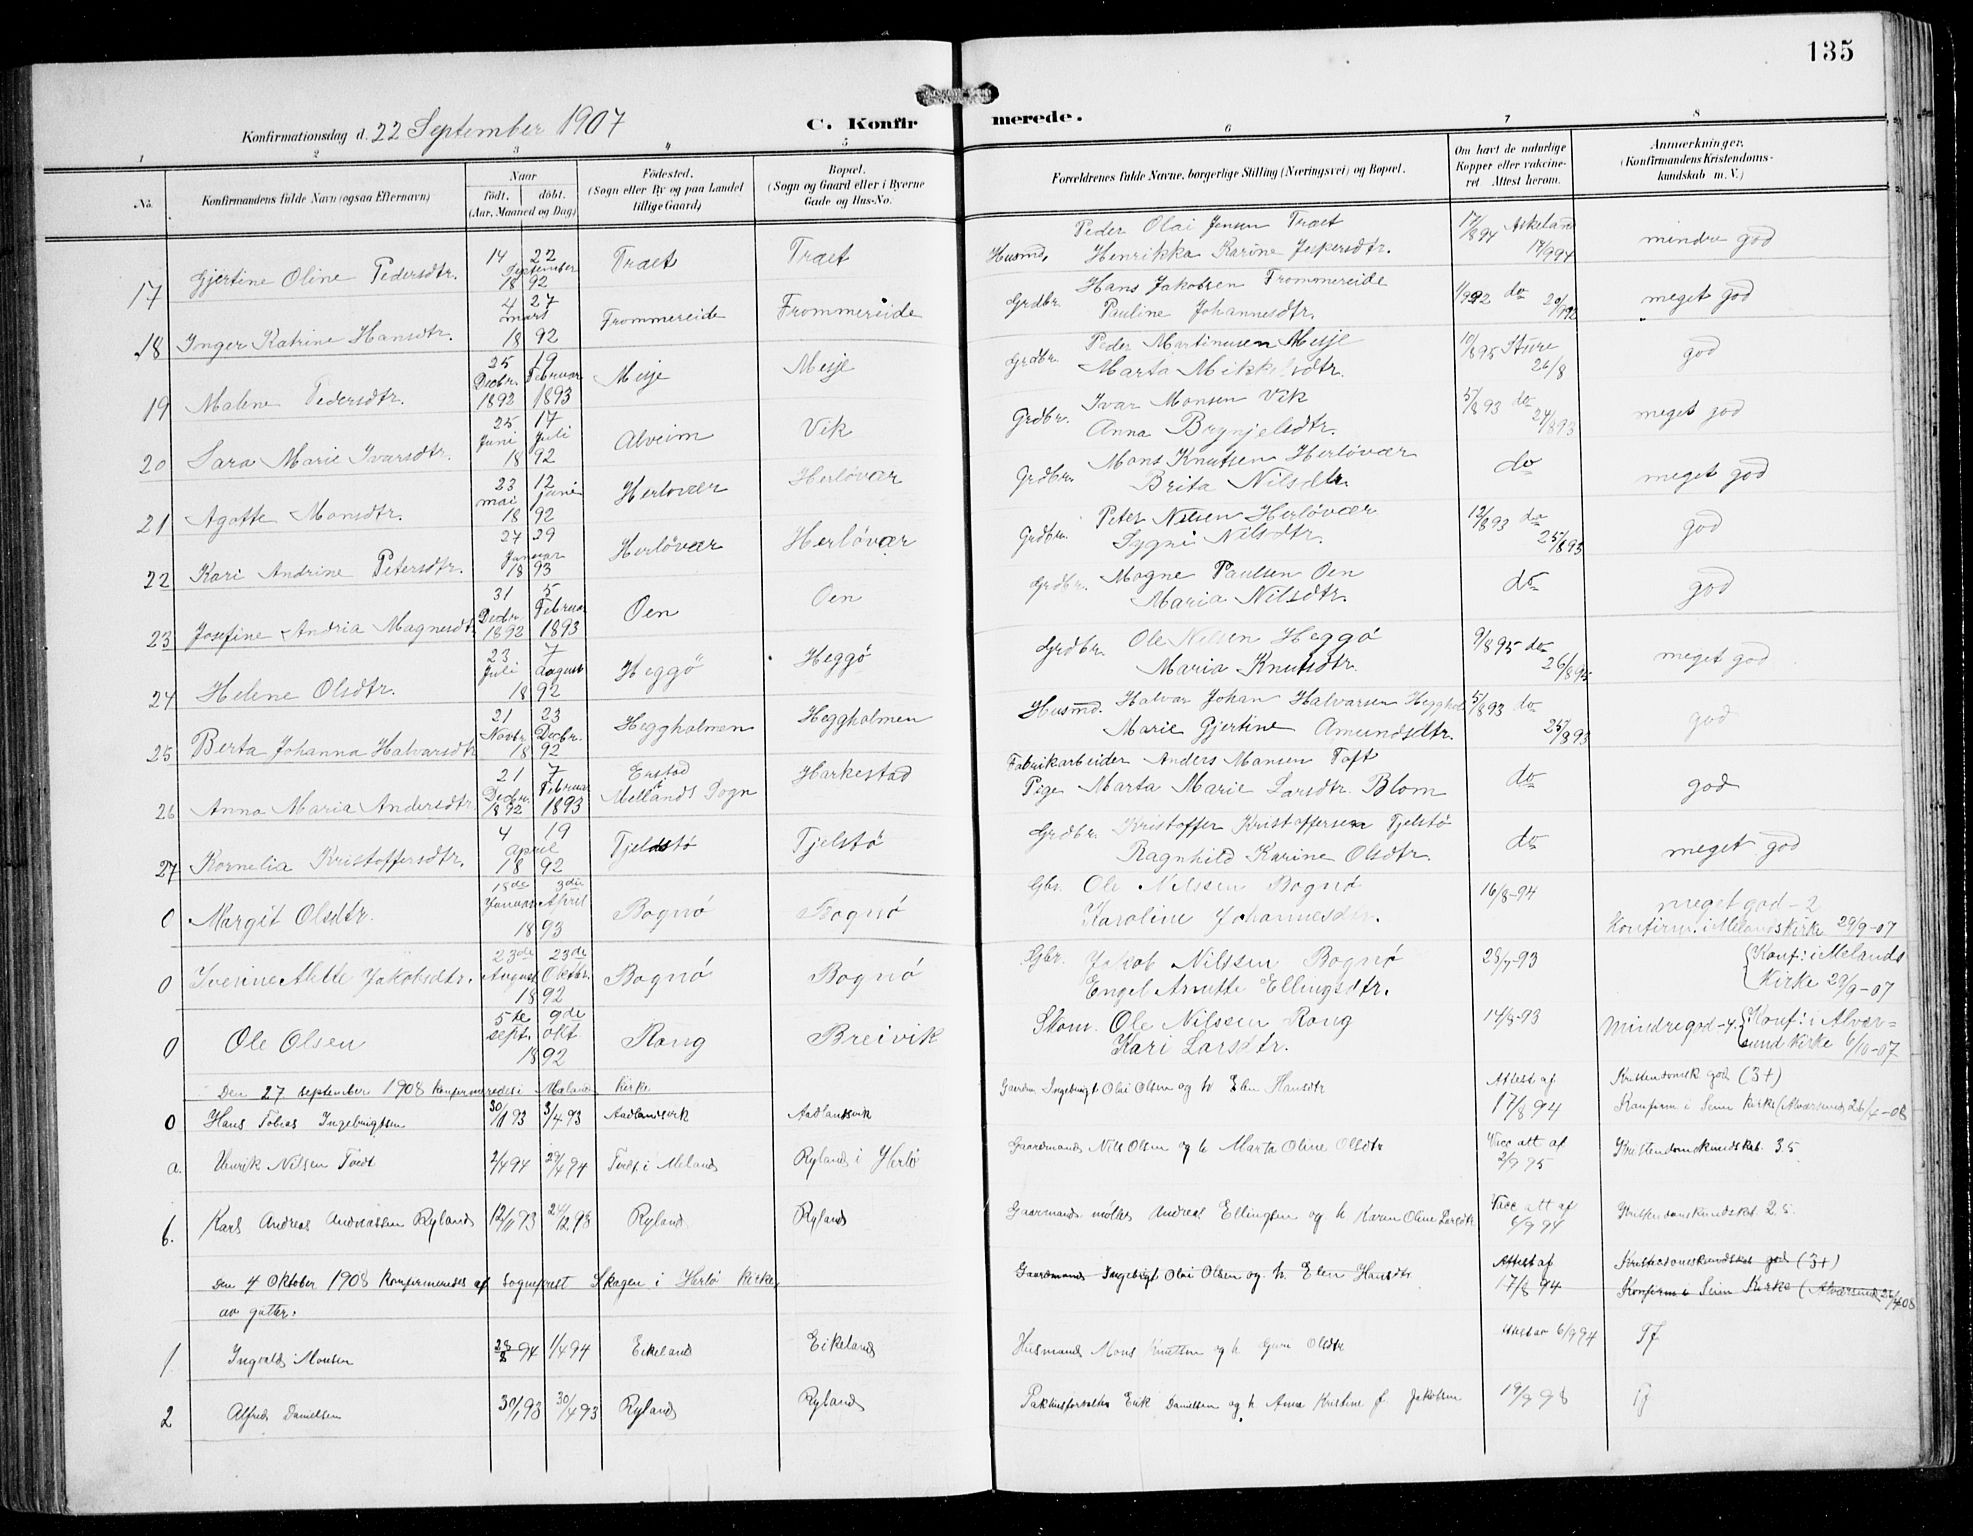 135
Konfirmationsdag d. 22 September 1907
C. Konfirmerede.
1 2 3 4 5 6 7 8
No. Konfirmandens fulde Navn (ogsaa Efternavn)
Naar født. døbt. (Aar, Maaned og Dag)
Fødested. (Sogn eller By og paa Landet tillige Gaard)
Bopæl. (Sogn og Gaard eller i Byerne Gade og Hus-No.
Forældrenes fulde Navne, borgerlige Stilling (Næringsvei) og Bopæl.
Om havt de naturlige Kopper eller vakcineret Attest herom.
Anmærkninger. (Konfirmandens Kristendomskundskab m. V.)
17 Gjertine Oline Pedersdtr. 14 22 September 1892 Træt Træt Husmd. Peder Olai Jensen Træt Henrikka Karine Jespersdtr. 17/8 94 Askeland 17/9 94 mindre god
18 Inger Katrine Hansdtr. 4 27 mars 1892 Frommereide Frommereide Grdbr. Hans Jakobsen Frommereide Pauline Johannesdtr. do meget god
19 Malene Pedersdtr. 25 Decbr. 1892 19 Februar 1893 Misje Misje Grdbr. Peder Martinusen Misje Marta Mikkelsdtr. 10/8 95 Sture 26/8 god
20 Sara Marie Ivarsdtr. 25 Juni 17 Juli 1892 Alveim Vik Grdbr. Ivar Monsen Vik Anna Brynjelsdtr. 5/8 93 do 24/8 93 meget god
21 Agatte Monsdtr. 23 mai 12 juni 1892 Herlovær Herløvær Grdbr. Mons Knutsen Herløvær Brita Nilsdtr. do meget god
22 Kari Andrine Petersdtr. 27 29 Januar 1893 Herløvær Herløvær Grdbr. Peter Nilsen Herløvær Sygni Nilsdtr. 12/8 93 do 25/8 93 god
23 Josefine Andria Magnesdtr 31 Decbr. 1892 5 Februar 1893 Oen Oen Grdbr. Magne Paulsen Oen Maria Nilsdtr. do god
24 Helene Olsdtr. 23 Juli 7 August 1892 Heggö Heggö Grdbr. Ole Nilsen Heggö Maria Knutsdtr. 9/8 95 do 26/8 95 meget god
25 Berta Johanna Halvarsdtr 21 Novbr. 23 Decbr. 1892 Heggholmen Heggholmen Husmd. Halvar Johan Halvarsen Hegghol Marie Gjertine Amundsdtr. 5/8 93 do 25/8 93 god
26 Anna Maria Andersdtr. 21 Decbr. 1892 7 Februar 1893 Erstad Mellands Sogn Harkestad Fabrikarbeider Anders Mansen Toft Pige Marta Marie Larsdtr. Blom do god
27 Kornelia Kristoffersdtr. 4 19 April 1892 Tjeldstø Tjelstø Grdbr. Kristoffer Kristoffersen Tjelstø Ragnhild Karine Olsdtr. do meget god
0 Margit Olsdtr. 18de Januar 3die April 1893 Bognø Bognø Gbr. Ole Nilssen Bognø Karoline Johannesdtr. 16/8-94 meget god - 2 Konfirm. i Melands Kirke 29/9-07
0 Iverine Alette Jakobsdtr. 23de August 23de Oktbr. 1892 Bognø Bognø Gbr. Jakob Nilssen Bognø Engel Anntte Ellingsdtr. 93 Konf: i Melands Kirke 29/9-07
0 Ole Olsen 5te sept. 9de okt 1892 Rong Breivik Skom. Ole Nilssen Rong Kari Larsdtr. 14/8-93 Mindre god - 4. Konf: i Alversund Kirke 6/10-07
Den 27 september 1908 konfirmeredes i Meland Kirke
0 Hans Tobias Ingebrigtsen 93 3/4 93 Aadlandsvik Aadlandsvik Gaardm Ingebrigt Olai Olsen og h Elen Hansdtr Attest af 17/8 94 Kristendomsk god (3+) Konfirm i Seim Kirke (Alversund 26/4-08
a. Henrik Nilsen Tvedt 2/4 94 29/4 94 Tvedt i Meland Ryland i Herlø Gaardmand Nils Olsen og h Marta Oline Olsdtr Vacc att af 2/9 95 Kristendomskundskab. 3.5.
b. Karl Andreas Andreassen Ryland 12/11 93 Ryland Ryland Gaarmand møller Andreas Ellingsen og h Karen Oline Larsdtr Vacc att af 6/9 94 Kristendomskundskab 2.5.
Den 4 Oktober 1908 konfirmeredes af sogneprest Skagen i Herlø Kirke, av gutter.
Gaardmand Ingebrigt Olai Olsen og h. Elen Hansdtr Attest af 17/8 94 Kristendomskundskab god (3+) Konfirm i Seim Kirke (Alversund 26/4 08
1 Ingvald Monsen 94 1/4 94 Eikeland Eikeland Husmand Mons Knutsen og h Guro Olsdtr Attest av 6/9 94 Tf
2 Alfred Danielsen 93 30/4 93 Ryland Ryland Pakhusforvalter Erik Danielsen og h Anna Kristine f. Jakobsen 98